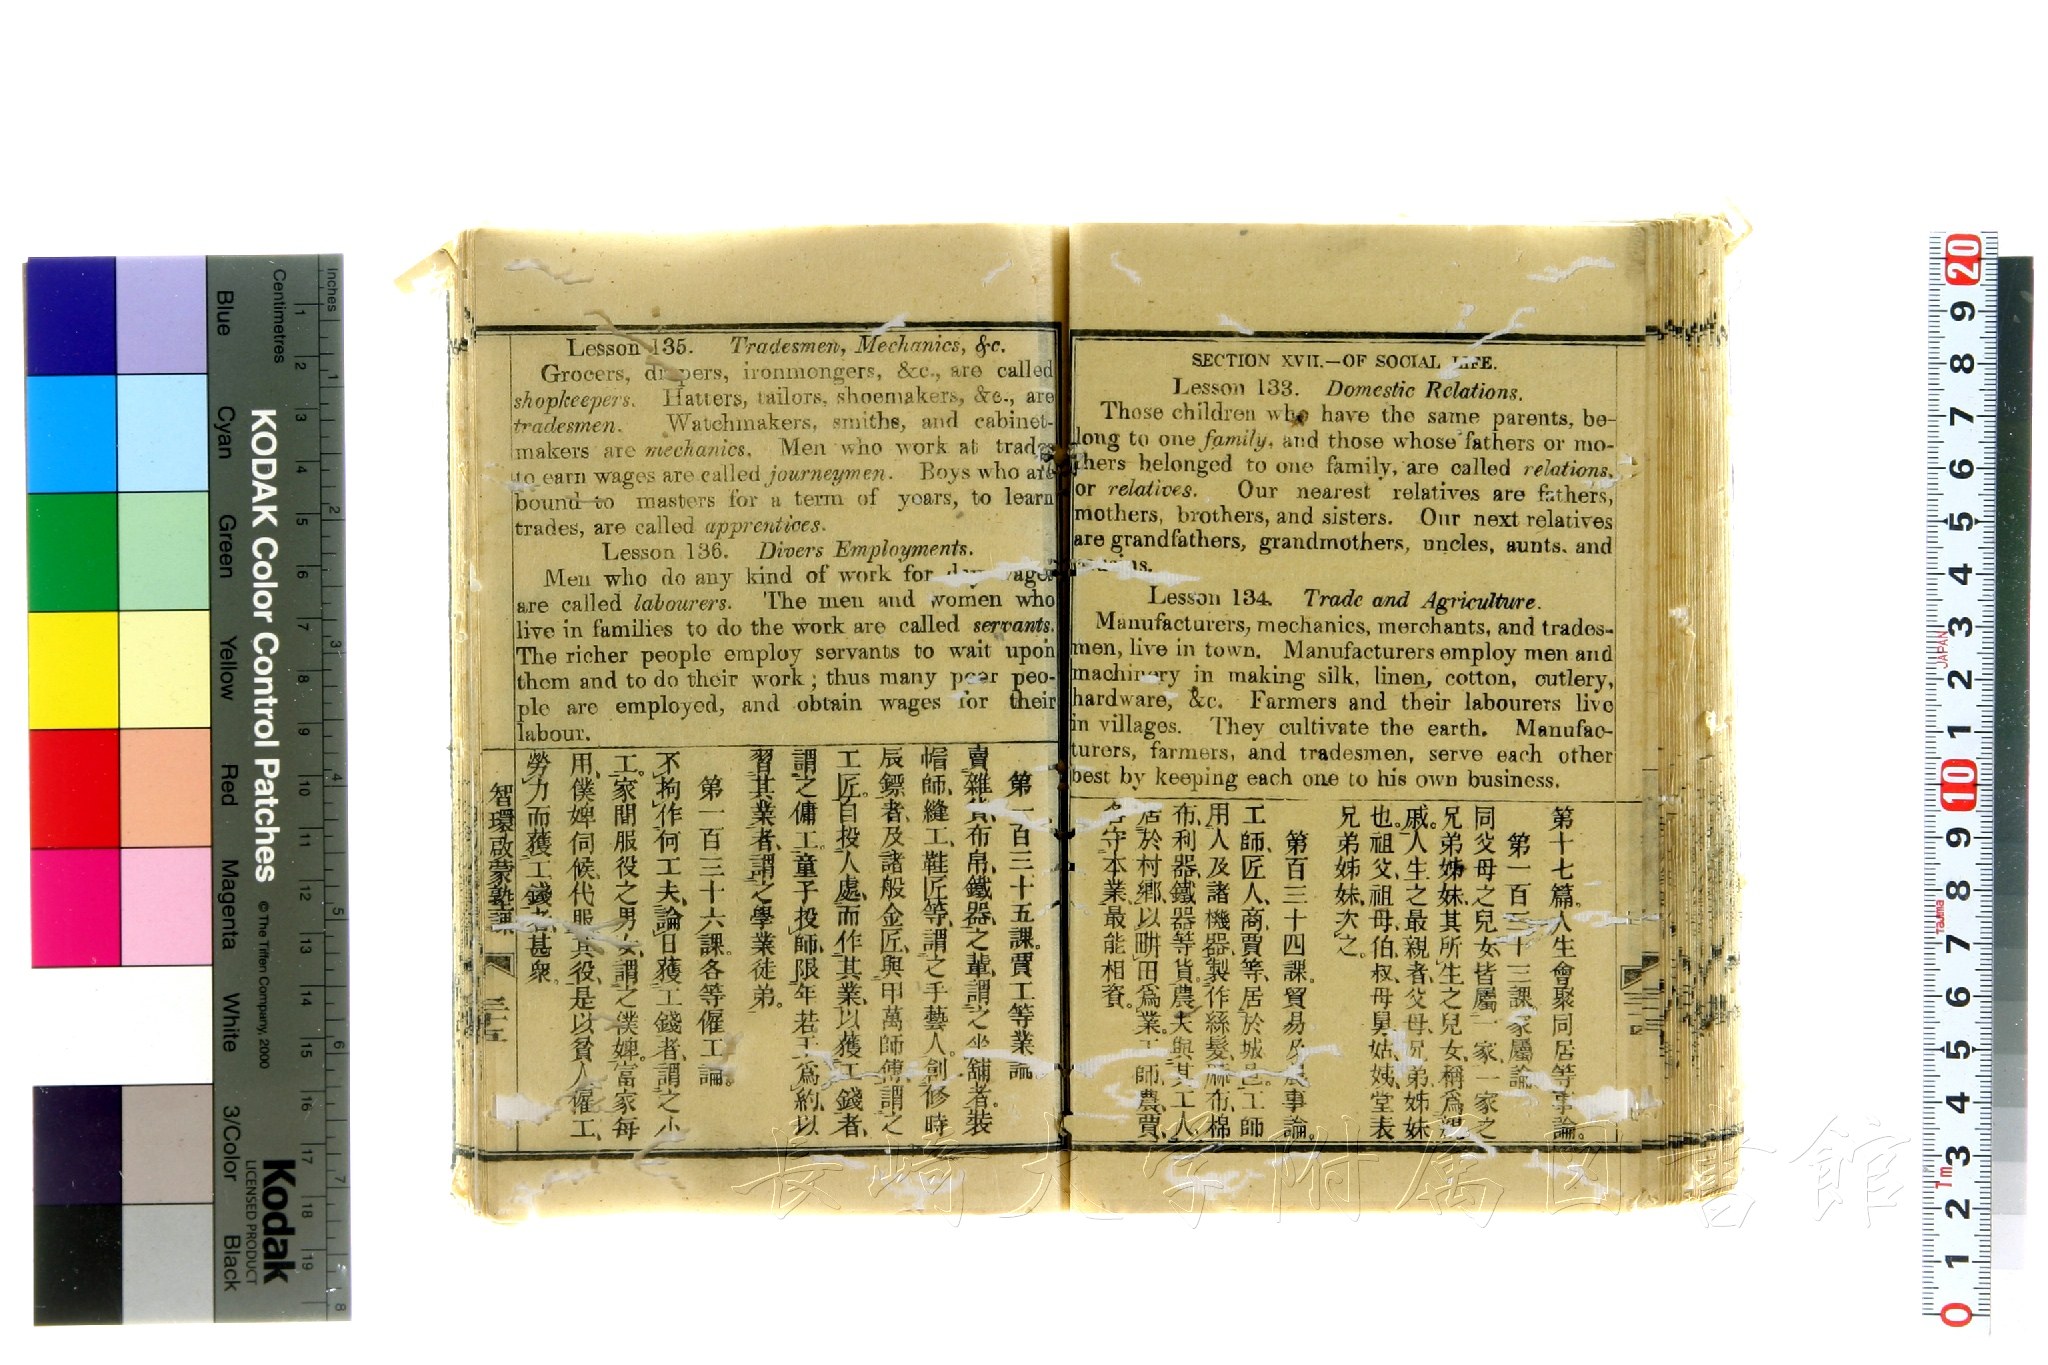 SECTION XVII.—OF SOCIAL LIFE.
Lesson 133. Domestic Relations.
Those children who have the same parents, be-
long to one family, and those whose fathers or mo-
thers belonged to one family, are called relations,
or relatives. Our nearest relatives are fathers,
mothers, brothers, and sisters. Our next relatives
are grandfathers, grandmothers, uncles, aunts, and
Lesson 134. Trade and Agriculture.
Manufacturers, mechanics, merchants, and trades-
men, live in town. Manufacturers employ men and
machinery in making silk, linen, cotton, cutlery,
hardware, &c. Farmers and their labourers live
in villages. They cultivate the earth. Manufac-
turers, farmers, and tradesmen, serve each other
best by keeping each one to his own business.
第十七篇。人生會聚同居等事論。
第一百三十三課。家屬論
同父母之兒女、皆屬一家、一家之
兄弟姊妹、其所生之兒女、稱爲親
戚。人生之最親者、父母、兄弟、姊妹
也。祖父、祖母、伯、叔、母、舅、姑、姨、堂表
兄弟姊妹、次之。
第百三十四課。貿易及農事論。
工師、匠人、商、賈等、居於城邑。工師
用人及諸機器、製作絲髮、麻布、棉
布、利器、鐵器等貨。農夫與其工人、
居於村鄉、以畊田爲業。工師、農、賈、
各守本業、最能相資。
Lesson 135. Tradesmen, Mechanics, &c.
Grocers, drapers, ironmongers, &c., are called
shopkeepers. Hatters, tailors, shoemakers, &c., are
tradesmen. Watchmakers, smiths, and cabinet-
makers are mechanics. Men who work at trades
to earn wages are called journeymen. Boys who are
bound to masters for a term of years, to learn
trades, are called apprentices.
Lesson 136. Divers Employments.
Men who do any kind of work for day wages
are called labourers. The men and women who
live in families to do the work are called servants.
The richer people employ servants to wait upon
them and to do their work; thus many poor peo-
ple are employed, and obtain wages for their
labour.
第一百三十五課。賈工等業論
賣雜貨、布帛、鐵器、之輩、謂之坐舖者。裝
帽師、縫工、鞋匠等、謂之手藝人。創修時
辰鏢者、及諸般金匠、與甲萬師傅、謂之
工匠。自投人處、而作其業、以獲工錢者、
謂之傭工。童子投師、限年若干爲約、以
習其業者、謂之學業徒弟。
第一百三十六課。各等僱工論。
不拘作何工夫、論日獲工錢者、謂之小
工。家間服役之男女、謂之僕婢。富家每
用僕婢伺候、代服其役、是以貧人僱工、
勞力而獲工錢者、甚衆。
智環啟蒙塾課
三十五
長崎大学附属図書館
KODAK Color Control Patches
© The Tiffen Company, 2000
Kodak
LICENSED PRODUCT
Inches
Centimetres
1 2 3 4 5 6 7 8 9 10 11 12 13 14 15 16 17 18 19
1 2 3 4 5 6 7 8
Blue
Cyan
Green
Yellow
Red
Magenta
White
3/Color
Black
20
9
8
7
6
5
4
3
2
1
10
9
8
7
6
5
4
3
2
1
0
JAPAN
Tajima
1m